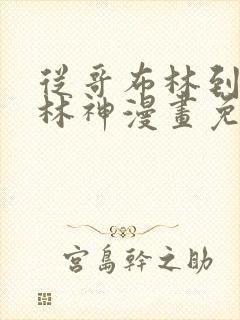 從哥布林到
林神漫畫免
宮島幹之助